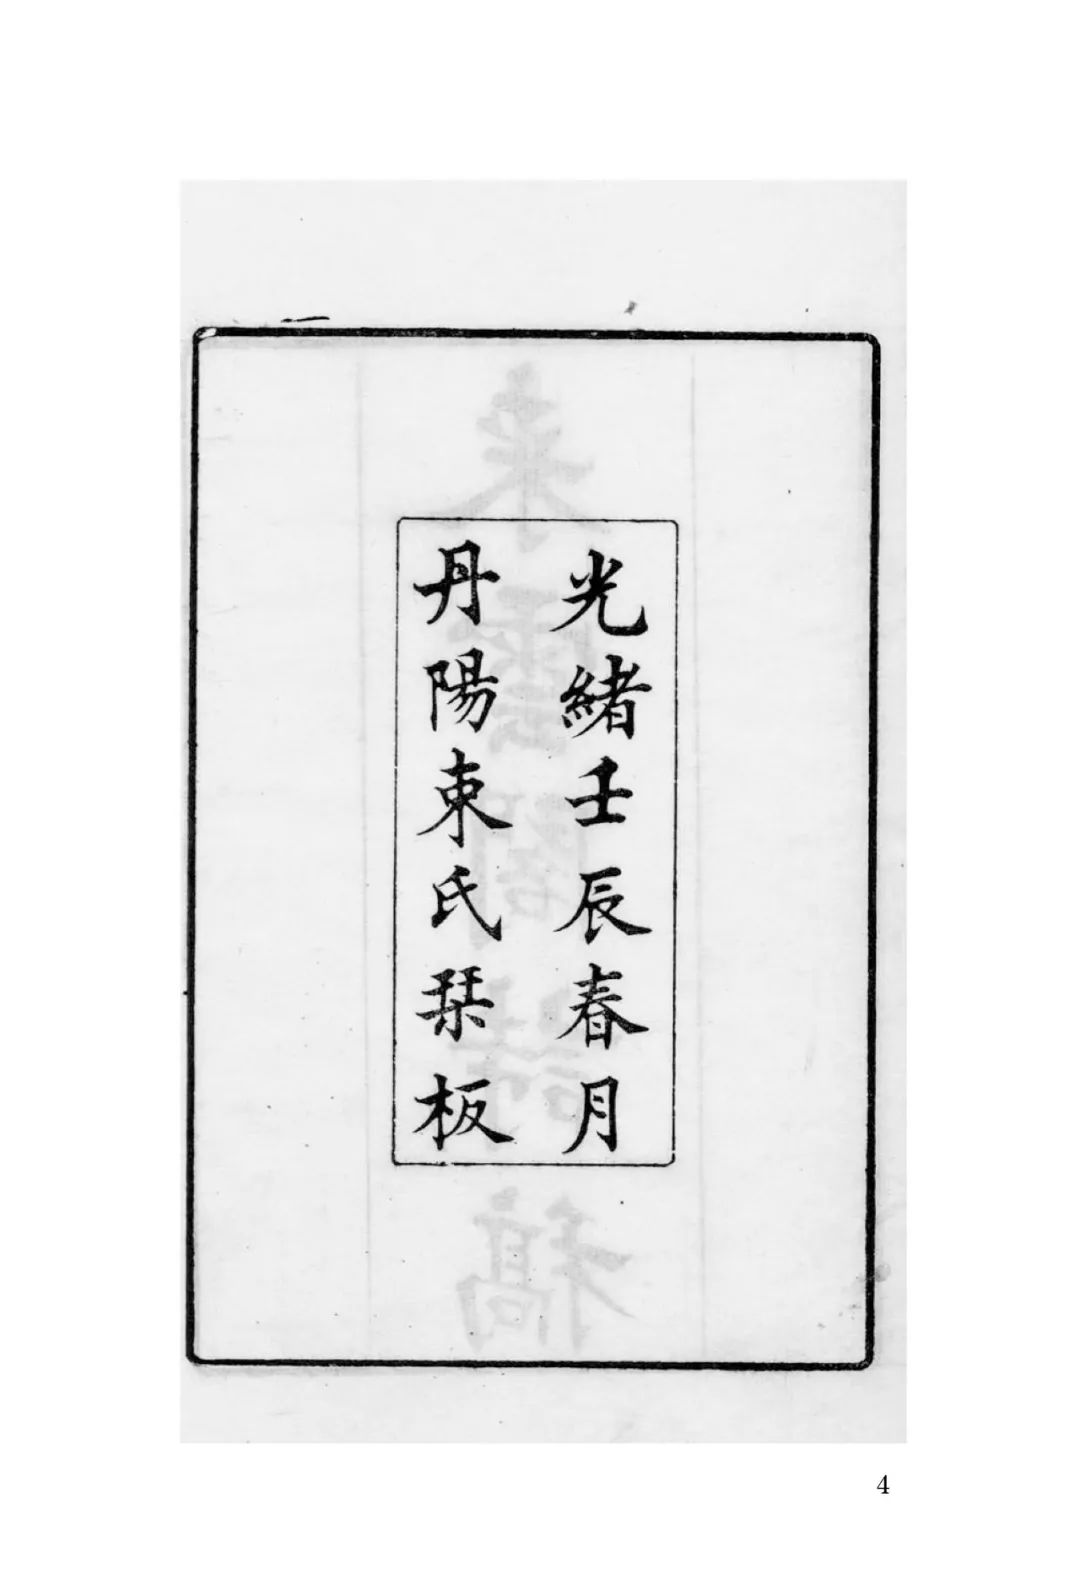 光緒壬辰春月
丹陽束氏栞板
4